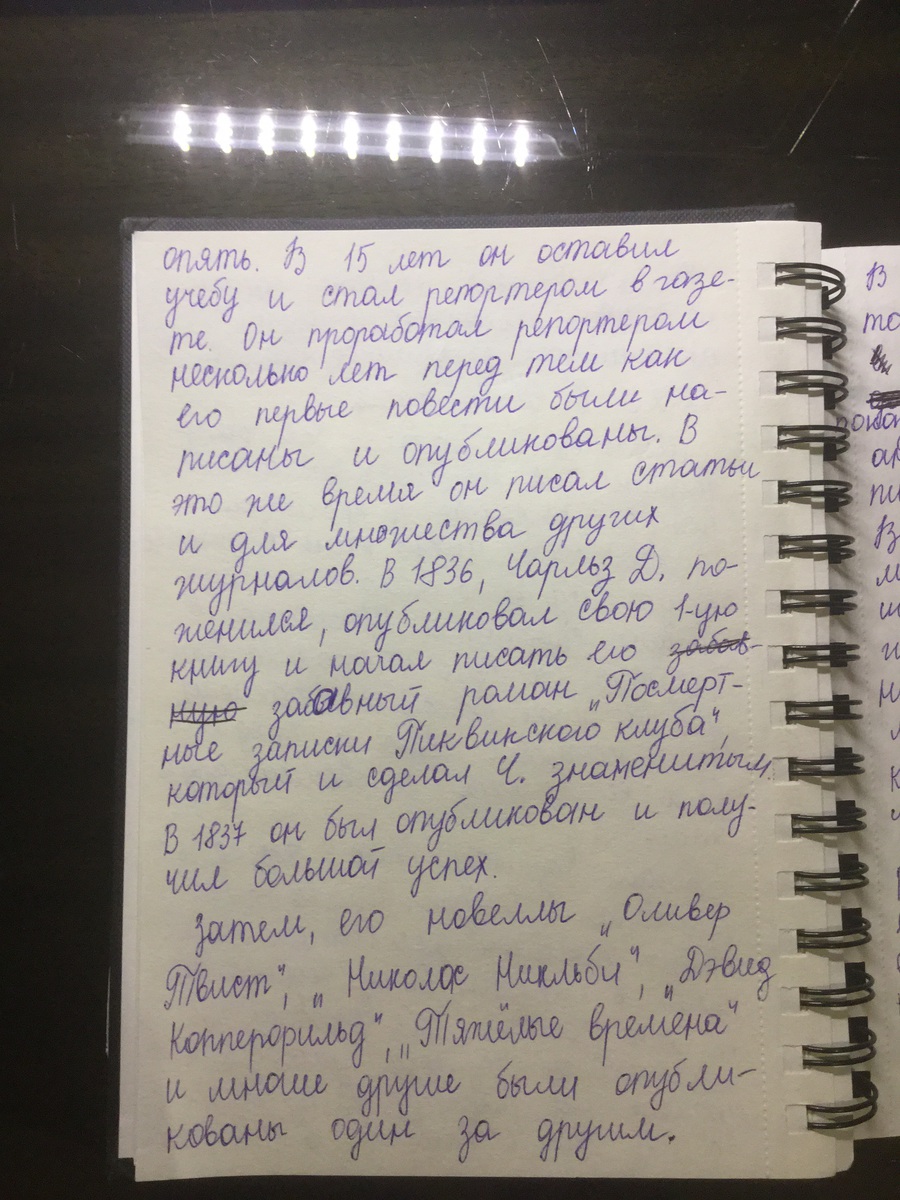 опять. В 15 лет он оставил
учебу и стал репортером в газе-
те. Он проработал репортером
несколько лет перед тем как
его первые повести были на-
писаны и опубликованы. В
это же время он писал статьи
и для множества других
журналов. В 1836, Чарльз Д. по-
женился, опубликовал свою 1-ую
книгу и начал писать его забав-
ную забавный роман „Посмерт-
ные записки Пиквинского клуба",
который и сделал Ч. знаменитым.
В 1837 он был опубликован и полу-
чил большой успех.
Затем, его новеллы „Оливер
Твист", „Николас Никльби", „Дэвид
Копперфильд", „Тяжёлые времена"
и многие другие были опубли-
кованы один за другим.
В
то